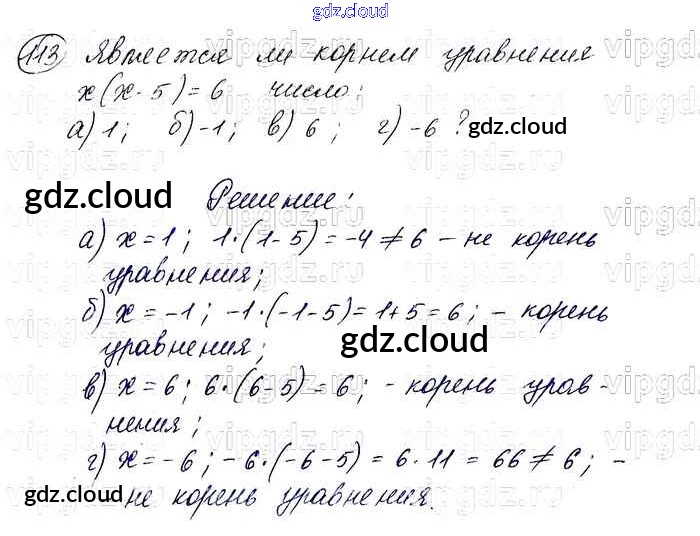 gdz.cloud
113 Является ли корнем уравнения
x(x-5)=6 число:
а) 1; б) -1; в) 6; г) -6?
gdz.cloud
gdz.cloud
Решение:
а) x=1; 1·(1-5)=-4≠6 - не корень
уравнения;
б) x=-1; -1·(-1-5)=1+5=6; - корень
уравнения;
gdz.cloud
в) x=6; 6·(6-5)=6; - корень урав-
нения;
г) x=-6; -6·(-6-5)=6·11=66≠6; -
gdz.cloud
не корень уравнения.